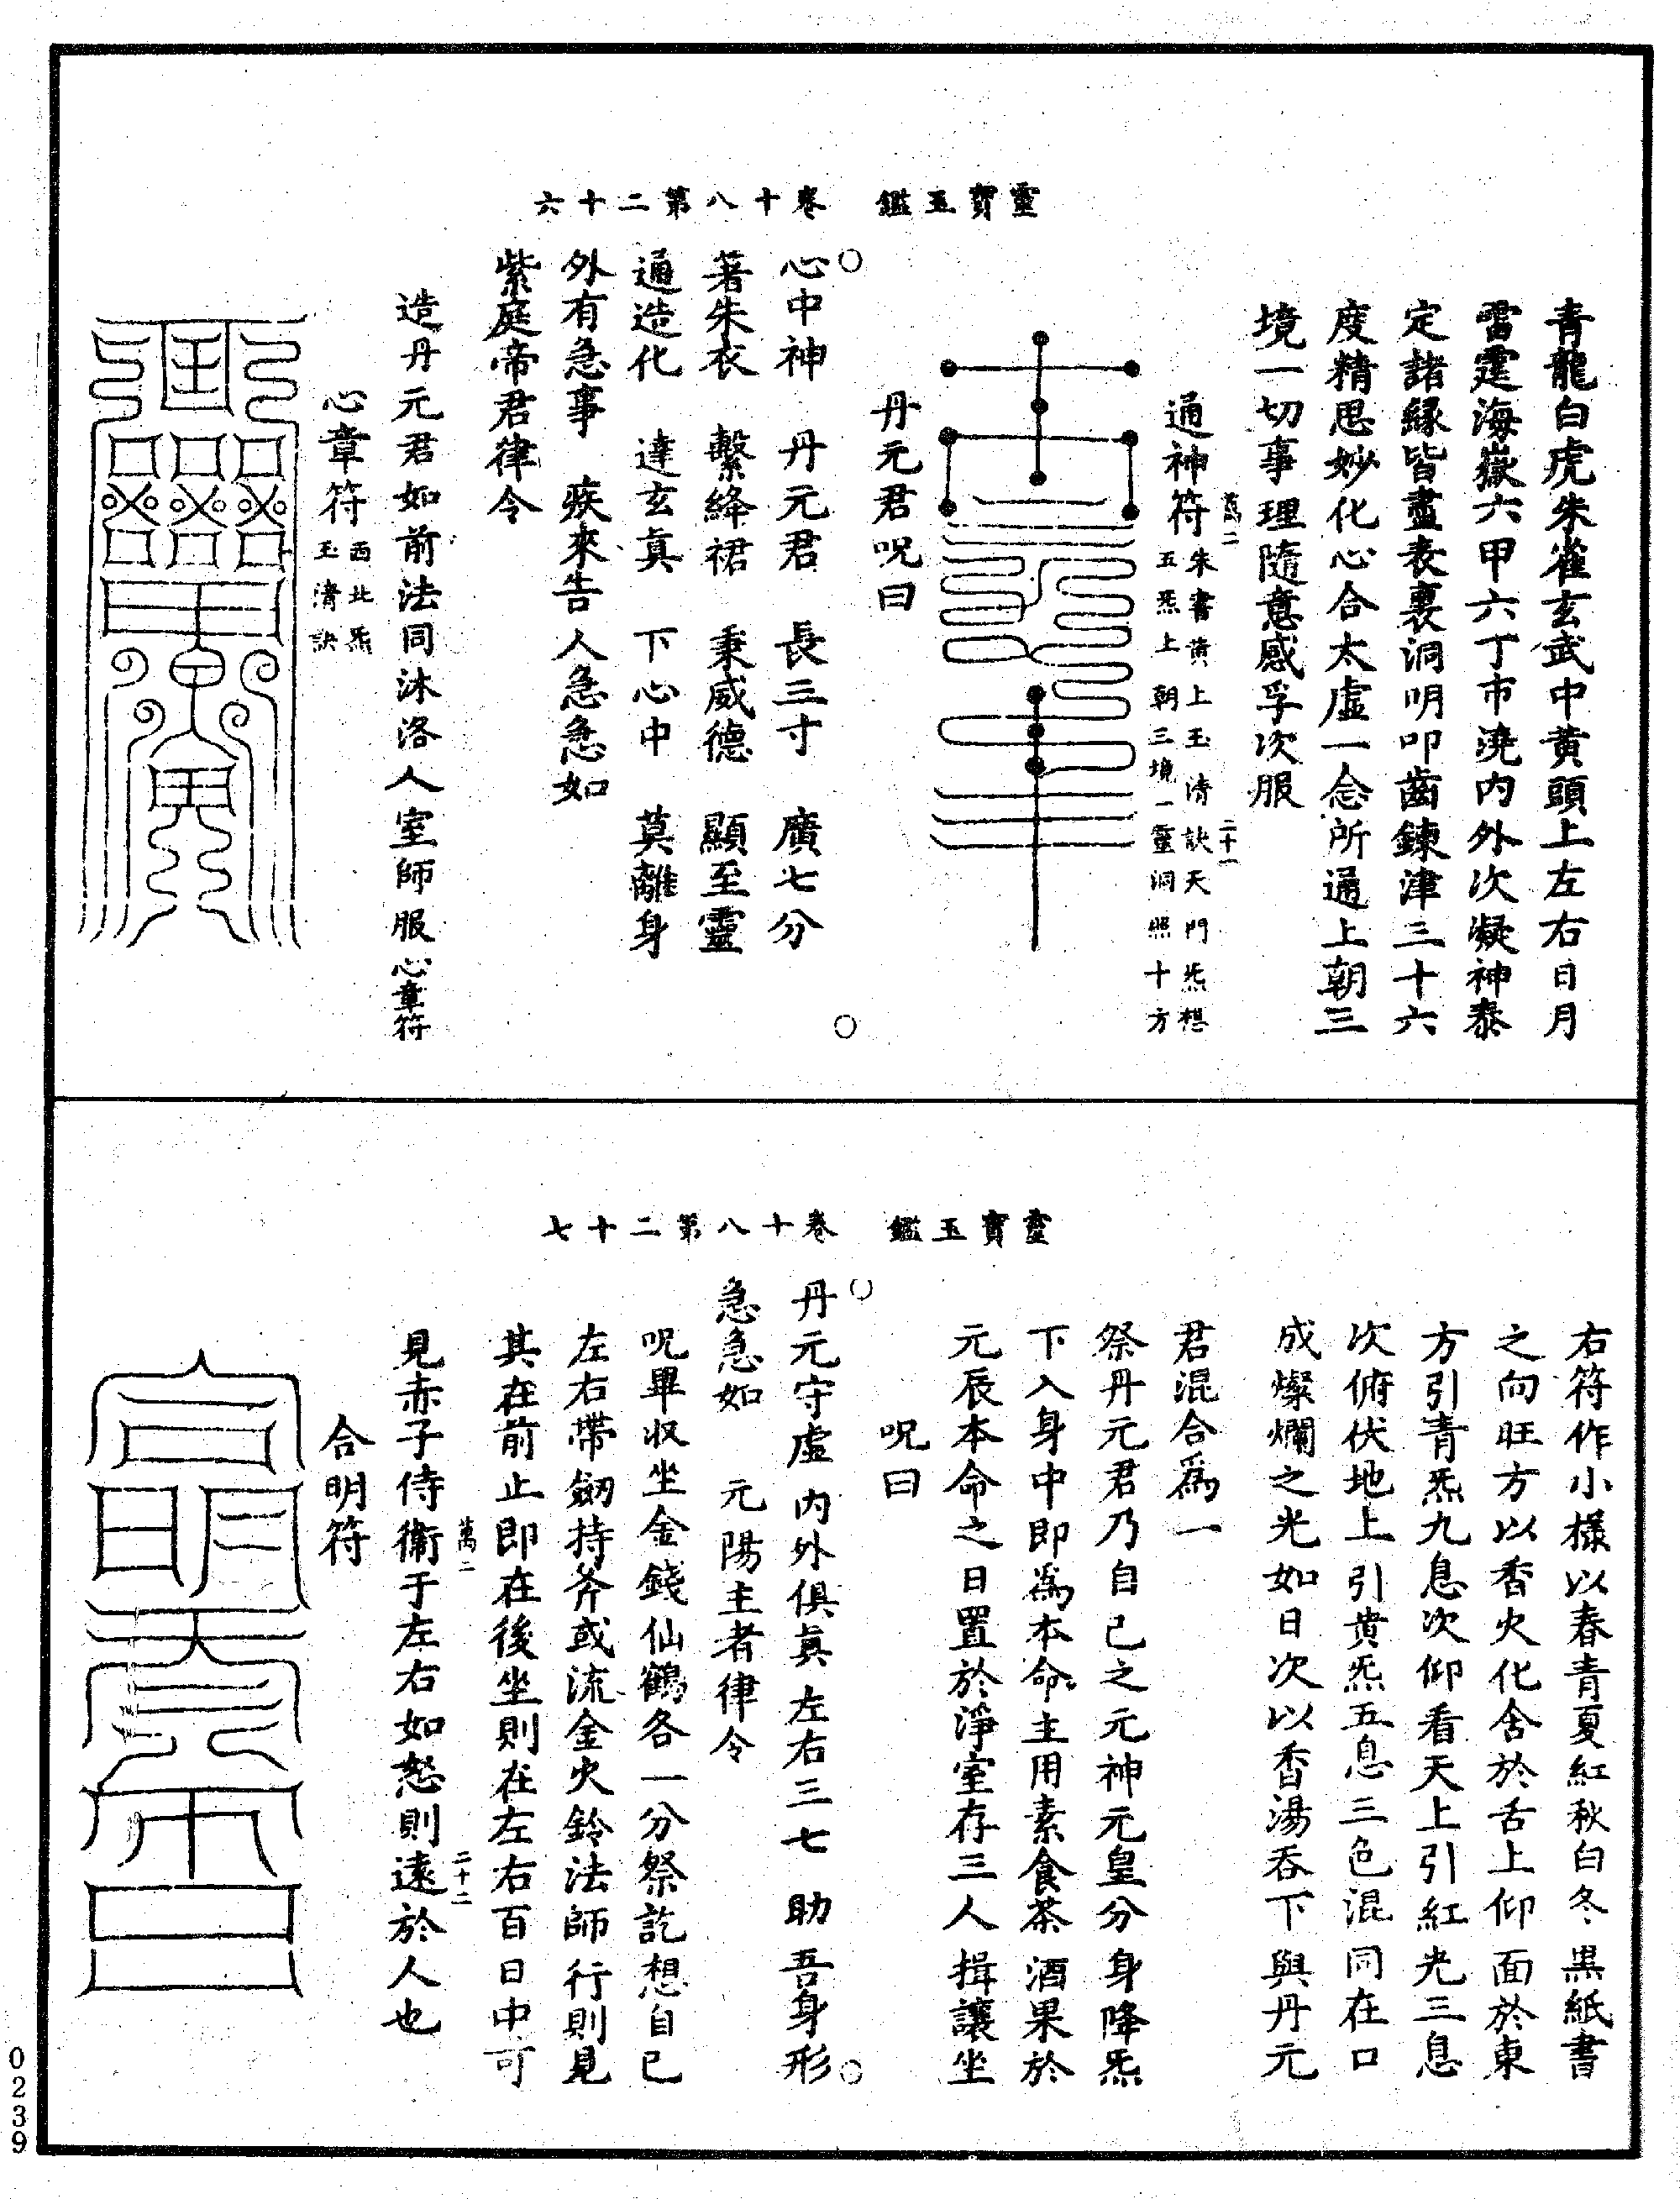 靈寳玉鑑 卷十八第二十六
青龍白虎朱雀玄武中黄頭上左右日月
雷霆海嶽六甲六丁帀澆内外次凝神泰
定諸縁皆盡表裏洞明叩齒鍊津三十六
度精思妙化心合太虚一念所通上朝三
境一切事理隨意感孚次服
萬二
二十一
通神符
朱書黄上玉清訣天門炁想
五炁上朝三境一靈洞照十方
丹元君呪曰
心中神 丹元君 長三寸 廣七分
著朱衣 繫絳裙 秉威德 顯至靈
通造化 達玄眞 下心中 莫離身
外有急事 疾來告人急急如
紫庭帝君律令
造丹元君如前法同沐洛人室師服心章符
心章符
西北炁
玉清訣
靈寳玉鑑 卷十八第二十七
右符作小樣以春青夏紅秋白冬黒紙書
之向旺方以香火化舍於舌上仰面於東
方引青炁九息次仰看天上引紅光三息
次俯伏地上引黄炁五息三色混同在口
成燦爛之光如日次以香湯呑下與丹元
君混合爲一
祭丹元君乃自己之元神元皇分身降炁
下入身中即爲本命主用素食茶酒果於
元辰本命之日置於淨室存三人揖讓坐
呪曰
丹元守虚 内外俱眞 左右三七 助吾身形
急急如 元陽主者律令
呪畢収坐金錢仙鶴各一分祭訖想自已
左右帶劒持斧或流金火鈴法師行則見
其在前止即在後坐則在左右百日中可
萬二
二十二
見赤子侍衞于左右如怒則遠於人也
合明符
0239